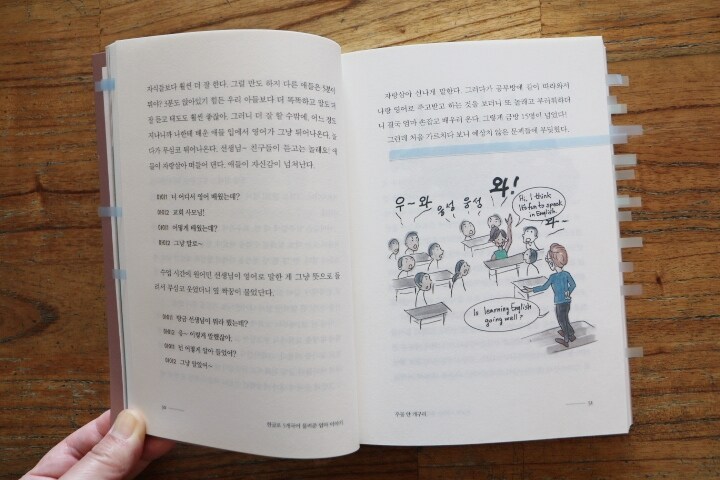 자식들보다 훨씬 더 잘 한다. 그럴 만도 하지 다른 애들은 5분이
뭐야? 3분도 앉아있기 힘든 우리 아들보다 더 똑똑하고 말도 더
잘 듣고 태도도 훨씬 좋잖아. 그러니 더 잘 할 수밖에. 어느 정도
지나니까 나한테 배운 애들 입에서 영어가 그냥 튀어나온다.
다가 무심코 튀어나온다. 선생님~ 친구들이 듣고는 놀래요!
들이 자랑삼아 떠들어 댄다. 애들이 자신감이 넘쳐난다.
아이1 너 어디서 영어 배웠는데?
아이2 교회 사모님!
아이1 어떻게 배웠는데?
아이2 그냥 말로~
수업 시간에 원어민 선생님이 영어로 말한 게 그냥 뜻으로 들
려서 무심코 웃었더니 옆 짝꿍이 물었단다.
아이1 방금 선생님이 뭐라 했는데?
아이2 응~ 이렇게 말했잖아.
아이1 넌 어떻게 알아 들었어?
아이2 그냥 알았어~
자랑삼아 신나게 말한다. 그러다가 공부방에 같이 따라와서
나랑 영어로 주고받고 하는 것을 보더니 또 놀래고 부러워하더
니 결국 엄마 손잡고 배우러 온다. 그렇게 금방 15명이 넘었다!
그런데 처음 가르치다 보니 예상치 않은 문제들에 부딪혔다.
우~와
웅성 웅성
와!
Hi, I think
It's fun to speak
in English.
Is learning English
going well?
우물 안 개구리